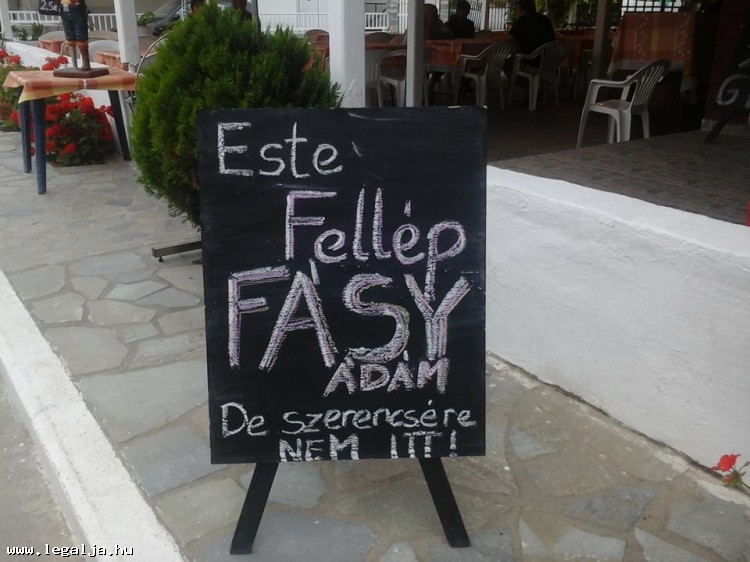 Este
Fellép
FÁSY
ÁDÁM
De szerencsére
NEM ITT!
www.legalja.hu